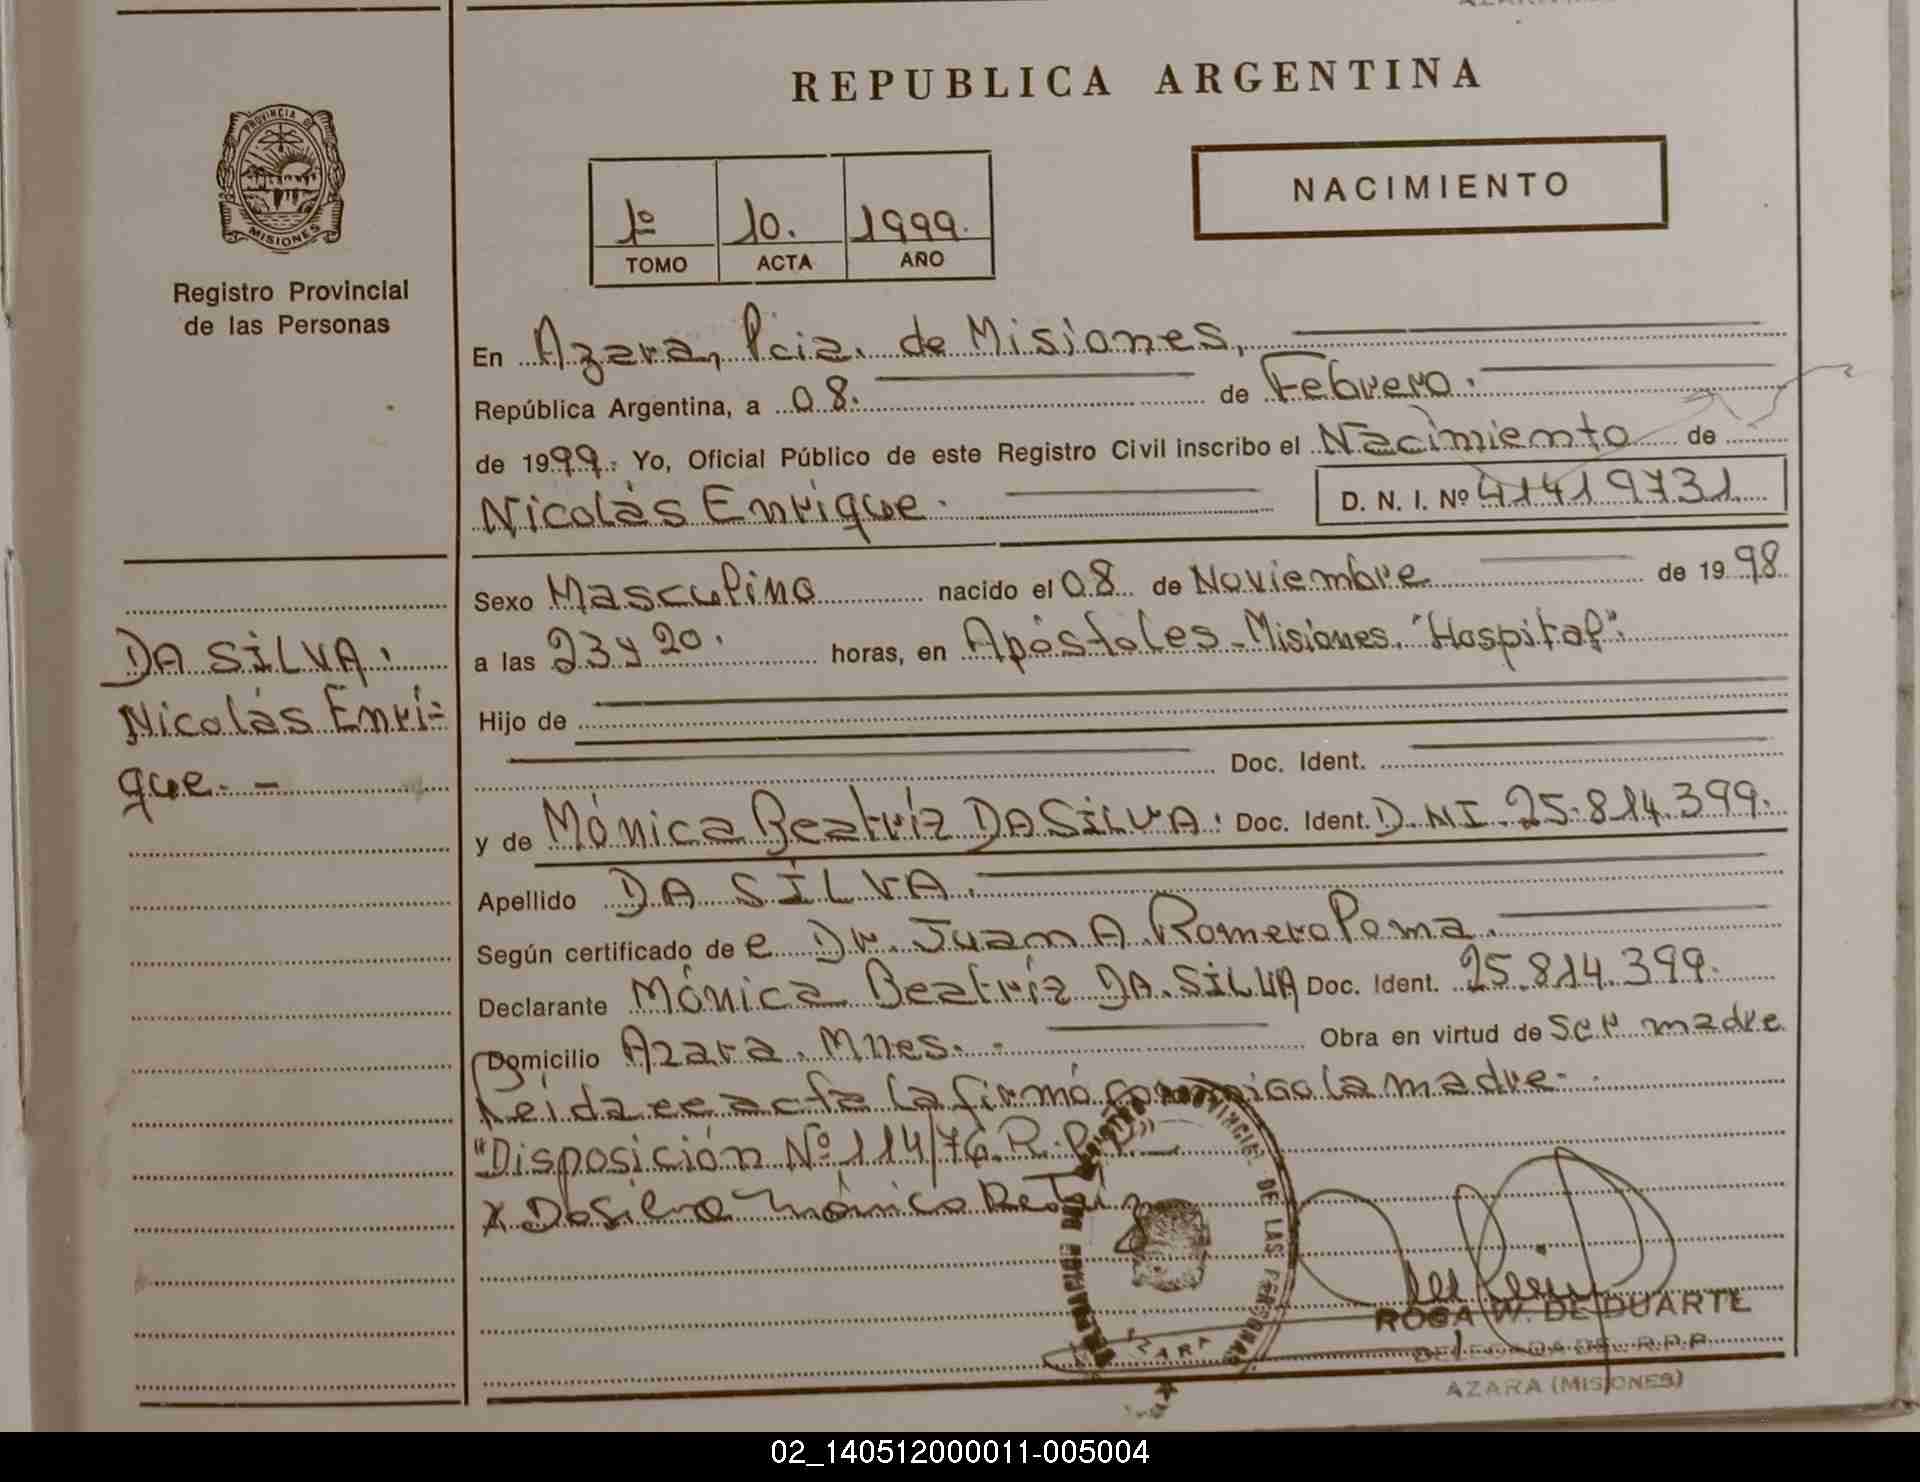 REPUBLICA ARGENTINA
PROVINCIA DE
MISIONES
Registro Provincial
de las Personas
1º 10. 1999.
TOMO ACTA AÑO
NACIMIENTO
En Azara, Pcia. de Misiones,
República Argentina, a 08. de Febrero.
de 1999. Yo, Oficial Público de este Registro Civil inscribo el Nacimiento de
Nicolás Enrique. D. N. I. Nº 41419731
Sexo Masculino nacido el 08 de Noviembre de 1998
a las 23 y 20. horas, en Apóstoles - Misiones. "Hospital".
Hijo de
Doc. Ident.
y de Mónica Beatríz DA SILVA. Doc. Ident. D.NI. 25.814.399.
Apellido DA SILVA.
Según certificado de e Dr. Juan A. Romero Poma.
Declarante Mónica Beatríz DA SILVA Doc. Ident. 25.814.399.
Domicilio Azara. Mnes. - Obra en virtud de ser madre
Leida ee acta la firmó conmigo la madre.
"Disposición Nº 114/76. R.P.P."
X Da Silva Mónica Beatriz
DA SILVA.
Nicolás Enri=
que. -
PROVINCIAL DE LAS PERSONAS
AZARA
ROSA W. DE DUARTE
DELEGADA DEL R.P.P.
AZARA (MISIONES)
02_140512000011-005004